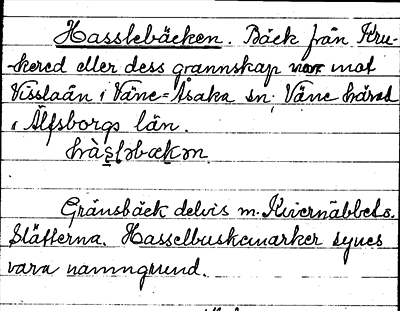 Hasslebäcken. Bäck från Kru-
kered eller dess grannskap mot
Visslaån i Väne-Åsaka sn; Väne härad
i Älfsborgs län.
hàs̲l̥əbækən.
Gränsbäck delvis m. Kvernäbbets.
Slätterna. Hasselbuskmarker synes
vara namngrund.